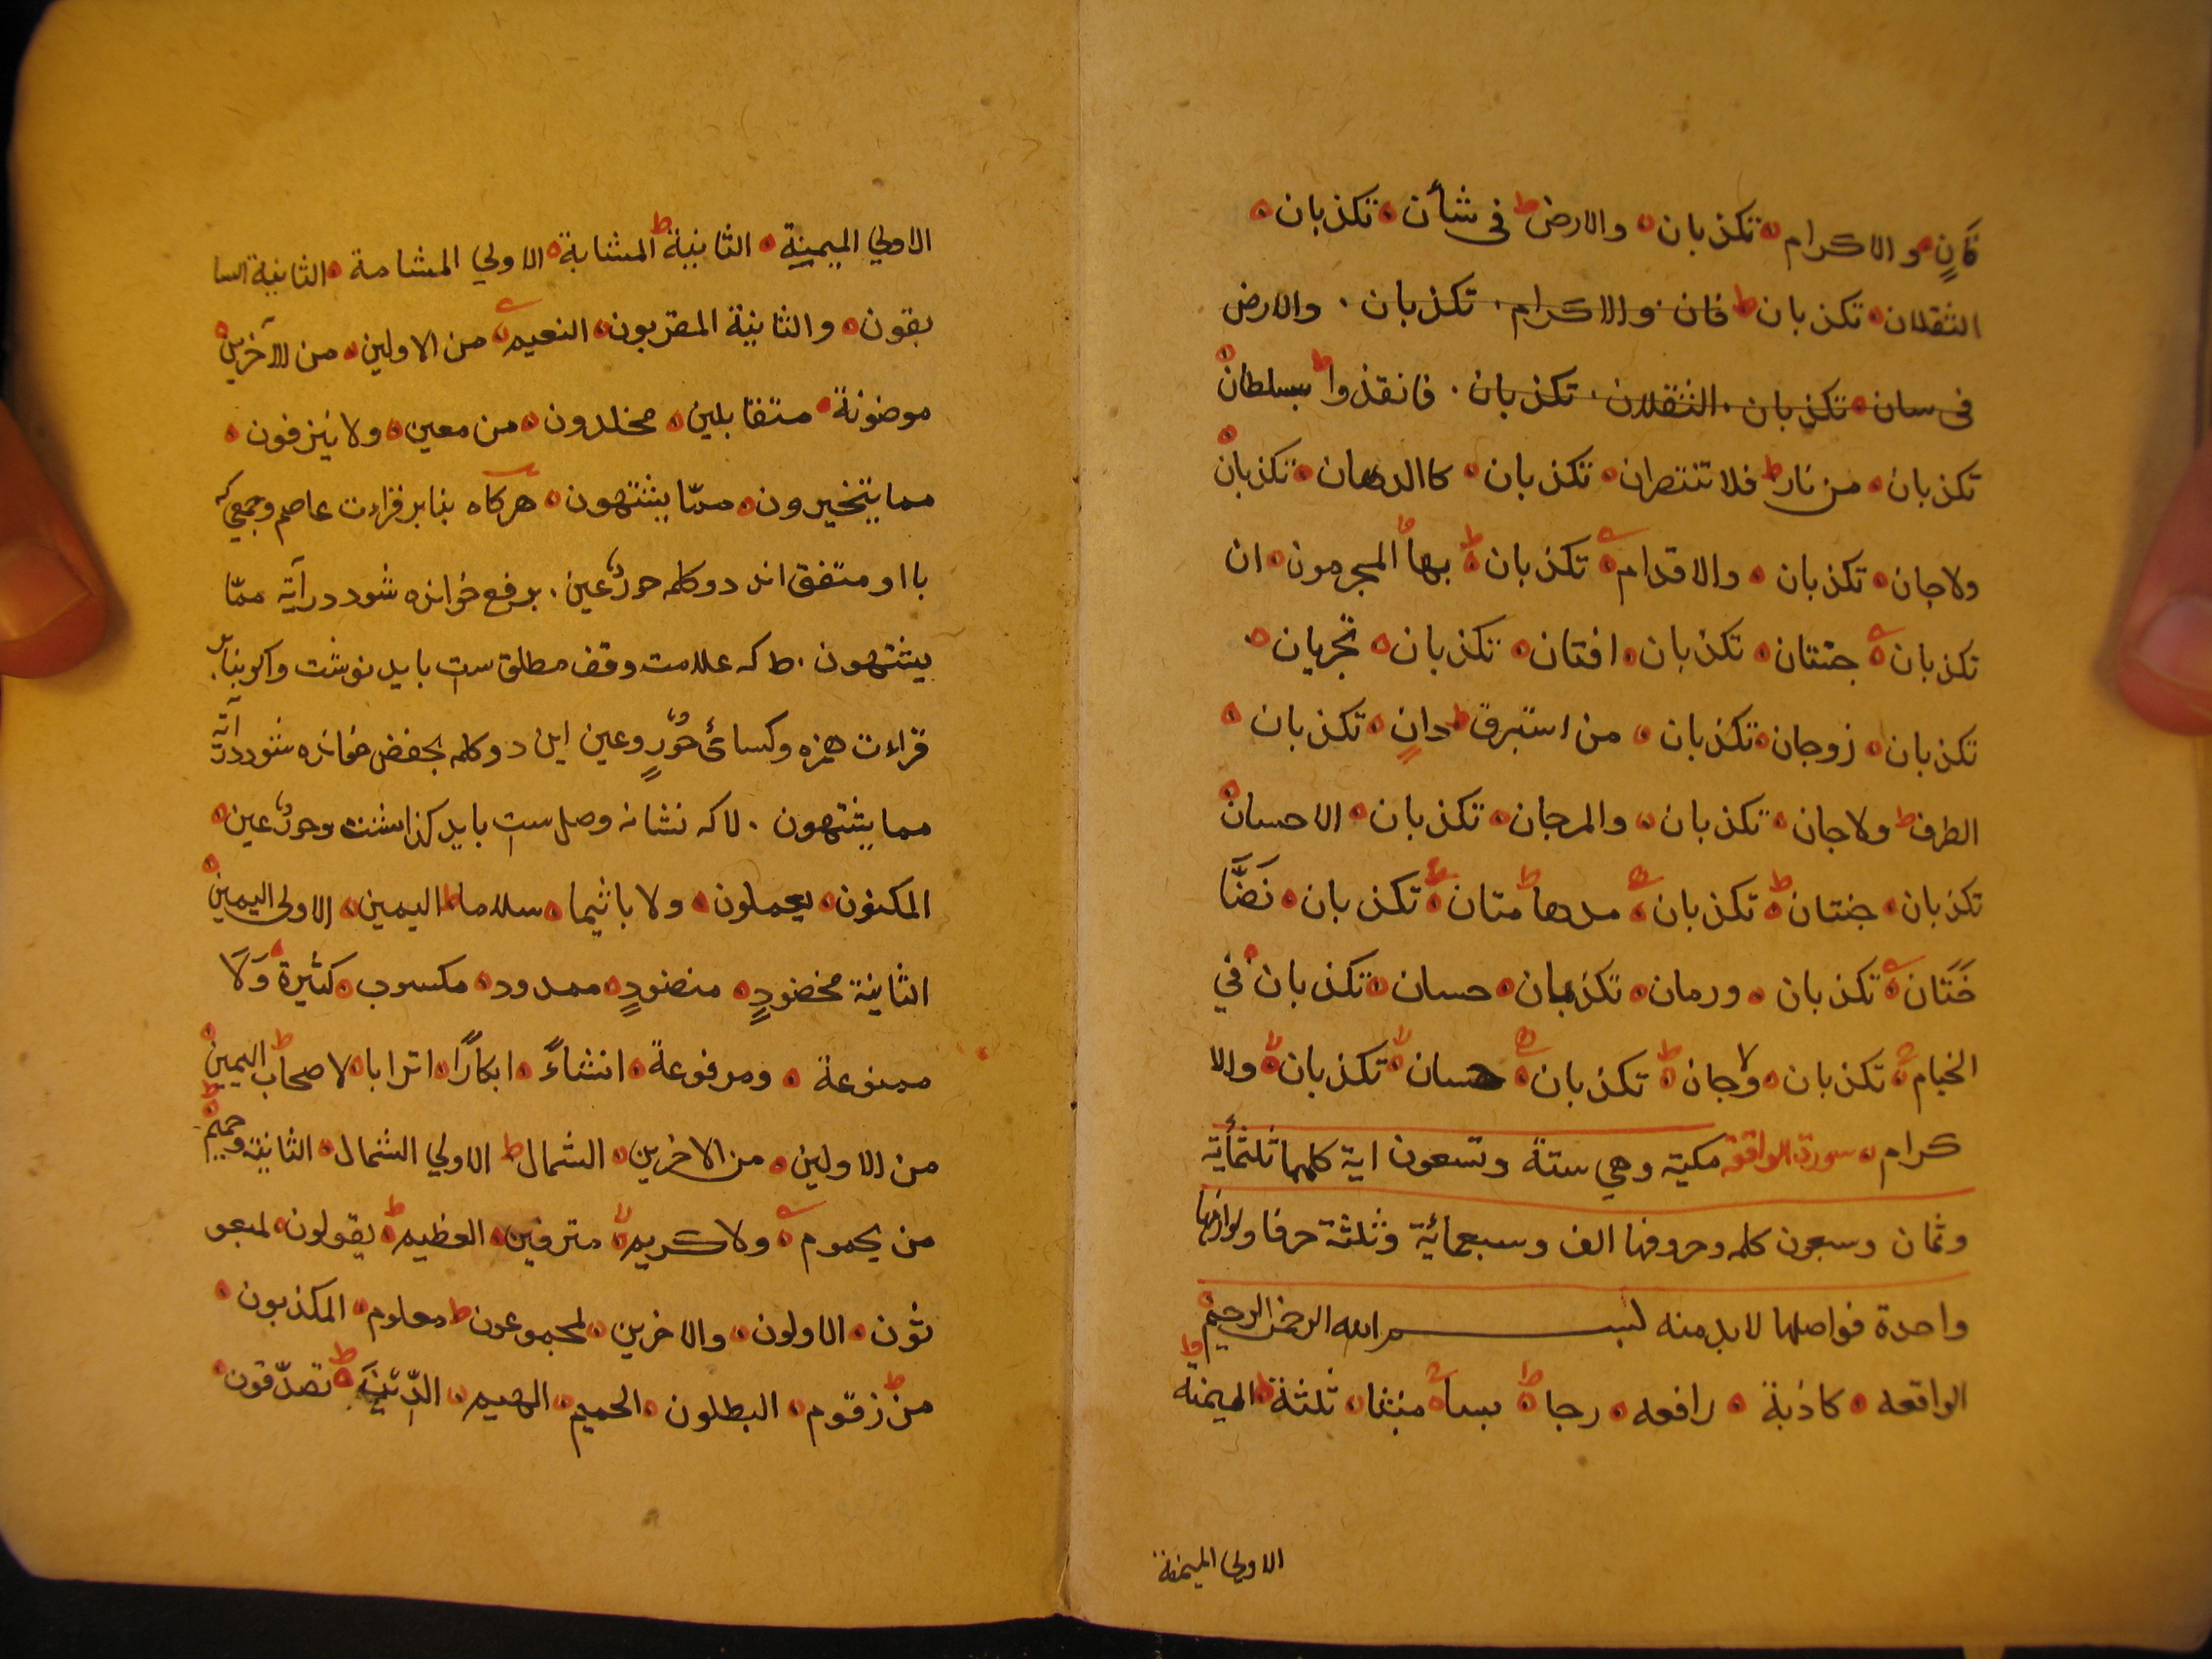 فَانٍ والاكرام تكذبان والارض ط في شأن تكذبان
الثقلان تكذبان ط فان والاكرام تكذبان والارض
في سان تكذبان الثقلان تكذبان فانفذوا ط بسلطان
تكذبان من نار ط فلا تنتصران تكذبان كالدهان تكذبان
ولاجان تكذبان والاقدام تكذبان ط بها المجرمون ان
تكذبان جنتان تكذبان افنان تكذبان تجريان
تكذبان زوجان تكذبان من استبرق ط دانٍ تكذبان
الطرف ط ولاجان تكذبان والمرجان تكذبان الاحسان
تكذبان جنتان ط تكذبان مدهامتان ط تكذبان نَضَّا
خَتَان تكذبان ورمان تكذبان حسان تكذبان في
الخيام تكذبان ولاجان ط تكذبان حسان تكذبان والا
كرام سورة الواقعة مكية وهي ستة وتسعون اية كلمها ثلثمأية
وثمان وسبعون كلمه وحروفها الف وسبعمائة وثلثة حرفا ولوازمها
واحدة فواصلها لابد منه بسم الله الرحمن الرحيم
الواقعه كاذبة رافعه رجا ط بسا منبثا ثلثة ط الميمنه ط
الاولي الميمنة
الاولي الميمينة الثانية ط المشئابة الاولي المشامة الثانية السا
بقون والثانية المقربون النعيم من الاولين من الآخرين
موضونة متقابلين مخلدون من معين ولا ينزفون
مما يتخيرون ممّا يشتهون هركاه بنابر قراءت عاصم وجمعي كه
با او متفق اند دو كلمه حورٌ عين برفع خوانده شود در آية ممّا
يشتهون ط كه علامت وقف مطلق ست بايد نوشت واكر بنابر
قراءت حمزه وكسائي حُورٍ وعين اين دو كلمه بخفض خوانده شود در آية
مما يشتهون لا كه نشانه وصل ست بايد كذاشت وحورٌ عين
المكنون يعملون ولا تاثيما سلاما ط اليمين الاولى اليمين
الثانية مخضودٍ منضودٍ ممدود مكسوب كثيرة وَلَا
ممنوعة ومرفوعة انشاءً ابكارًا اترابا لاصحاب ط اليمين
من الاولين من الاخرين الشمال ط الاولي الشمال الثانية وحميم
من يحموم ولا كريم مترفين العظيم ط يقولون لمبعو
ثون الاولون والاخرين لمجموعون ط معلوم المكذبون
من زقوم البطلون الحميم الهيم الدّين ط تصدّقون